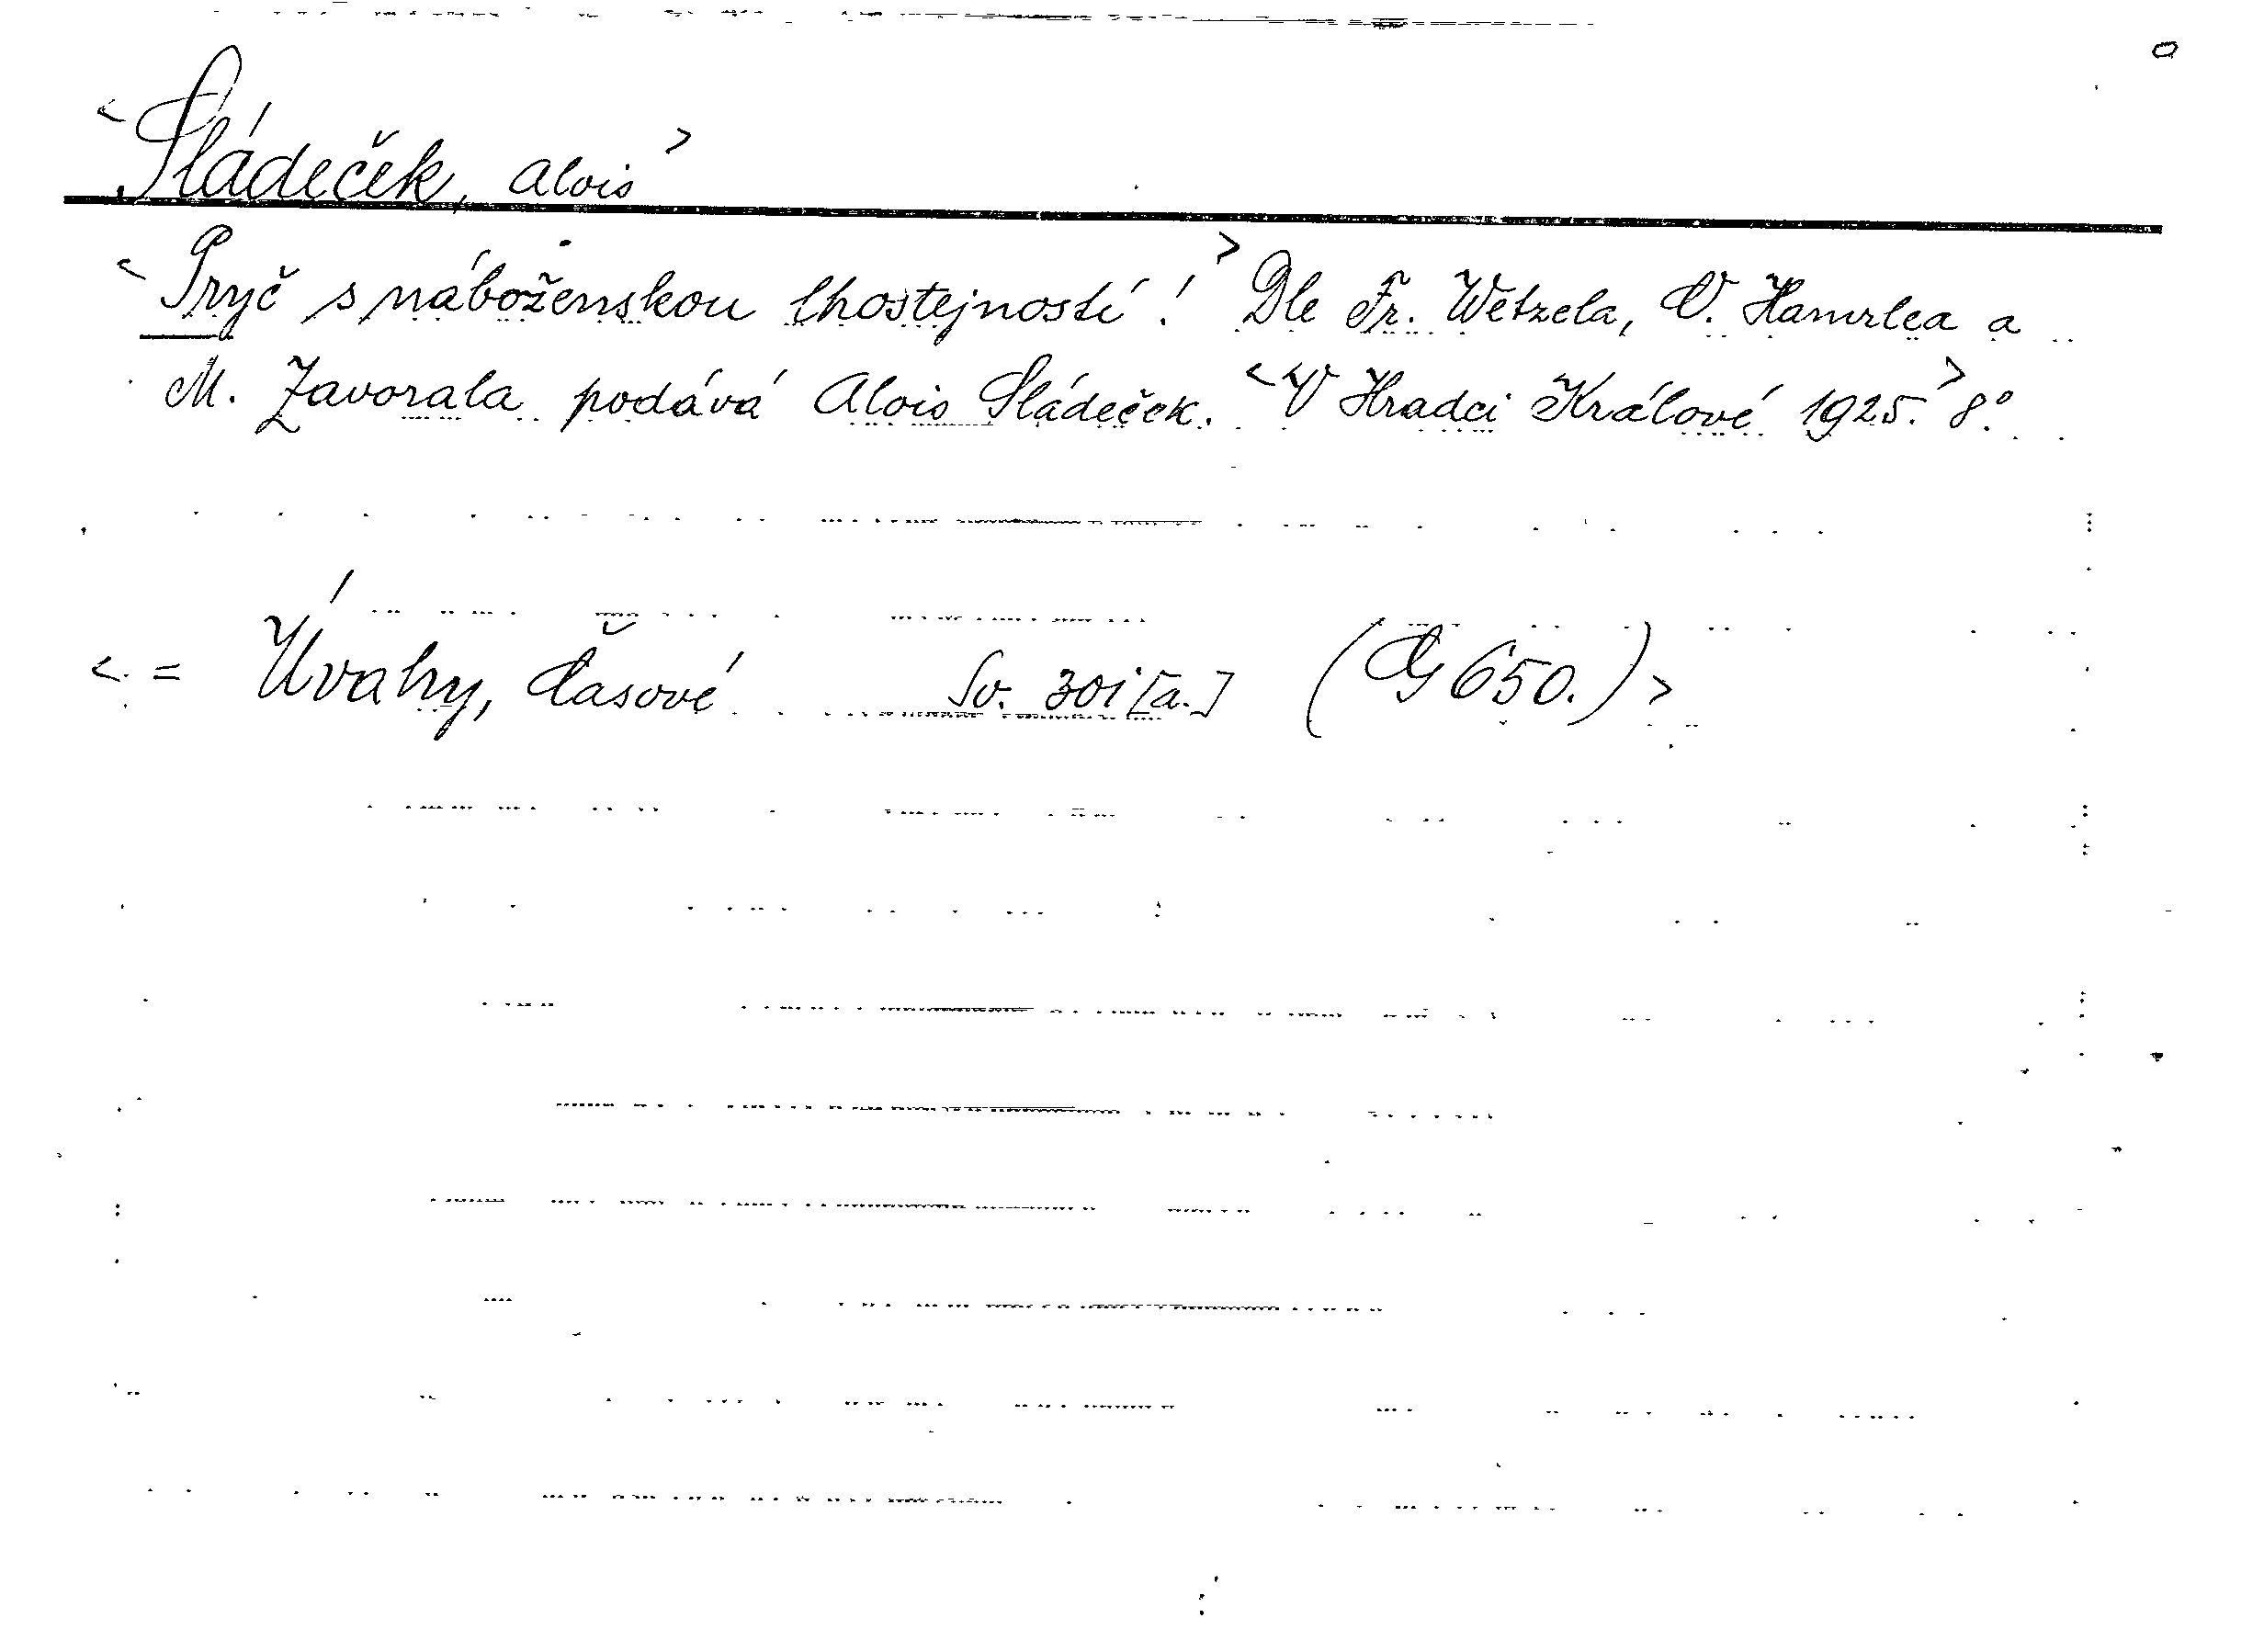 <Sládeček, Alois>
<Pryč s náboženskou lhostejností!> Dle Fr. Wetzela, V. Hamrlea a
M. Závorala podává Alois Sládeček. <V Hradci Králové 1925.> 8°.
<= Úvahy, časové Sv. 301[a.] (G 650.)>